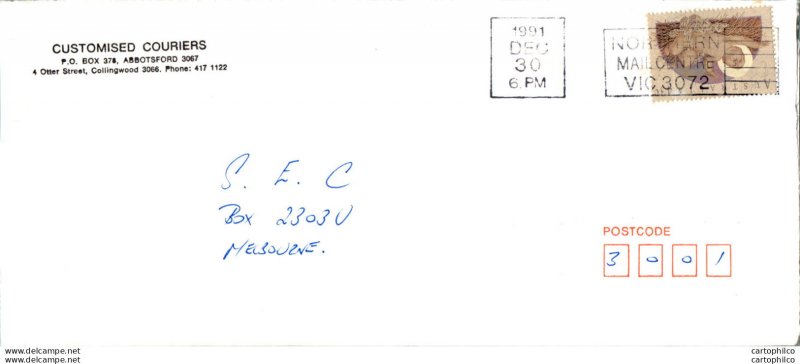 CUSTOMISED COURIERS
P.O. BOX 378, ABBOTSFORD 3067
4 Otter Street, Collingwood 3066. Phone: 417 1122
1991
DEC
30
6 PM
MAIL CENTRE
VIC 3072
S. E. C
Box 2303U
MELBOURNE.
POSTCODE
3 0 0 1
www.cartophilco.com
cartophilco
cartophilco